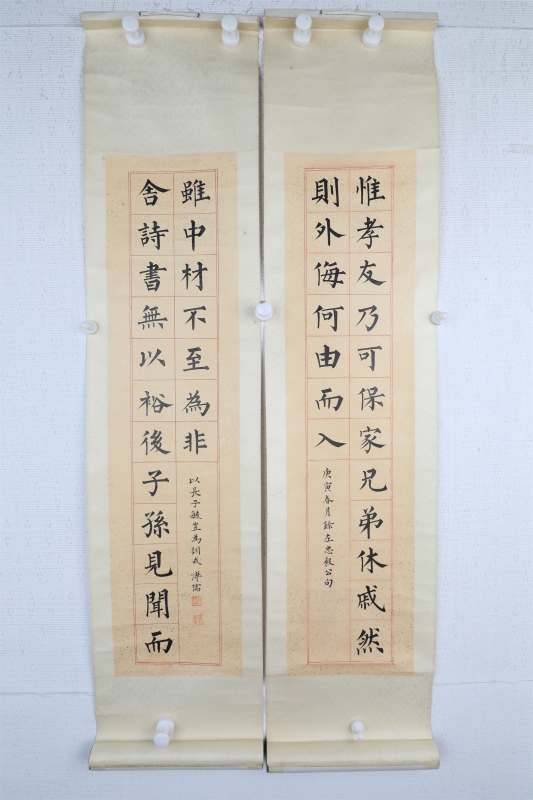 惟孝友乃可保家兄弟休戚然
則外侮何由而入
庚寅春月錄左忠毅公句
舍詩書無以裕後子孫見聞而
雖中材不至為非
以長子毓岦為訓戒 溥儒